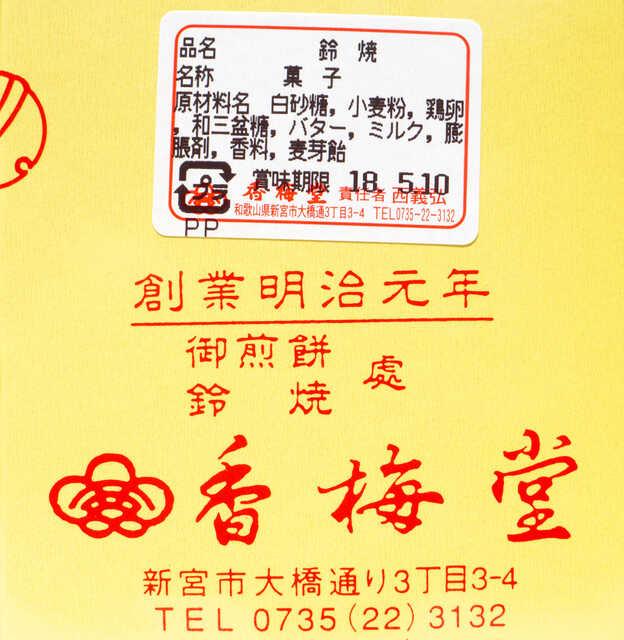 品名 鈴焼
名称 菓子
原材料名 白砂糖，小麦粉，鶏卵
，和三盆糖，バター，ミルク，膨
脹剤，香料，麦芽飴
プラ 賞味期限 18.5.10
香梅堂 責任者 西義弘
和歌山県新宮市大橋通3丁目3-4 TEL0735-22-3132
PP
創業明治元年
御煎餅
鈴焼
處
香梅堂
新宮市大橋通り3丁目3-4
TEL 0735(22)3132